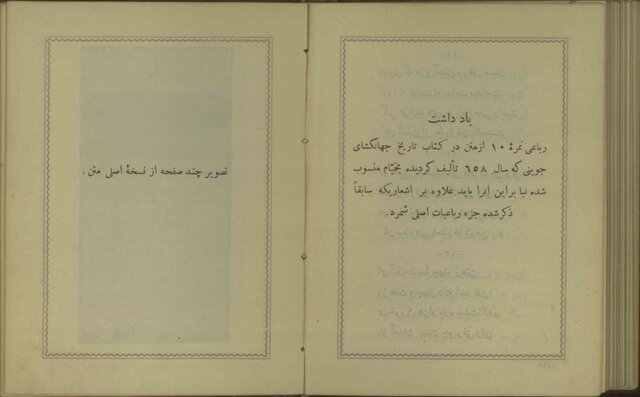 یاد داشت
رباعی نمرۀ ۱۰ ازمتن در کتاب تاریخ جهانگشای
جوینی که سال ۶۵۸ تألیف گردیده بخیّام منسوب
شده بنا براین انرا باید علاوه بر اشعاریکه سابقاً
ذکرشده جزء رباعیات اصلی شمرد.
تصویر چند صفحه از نسخۀ اصلی متن.